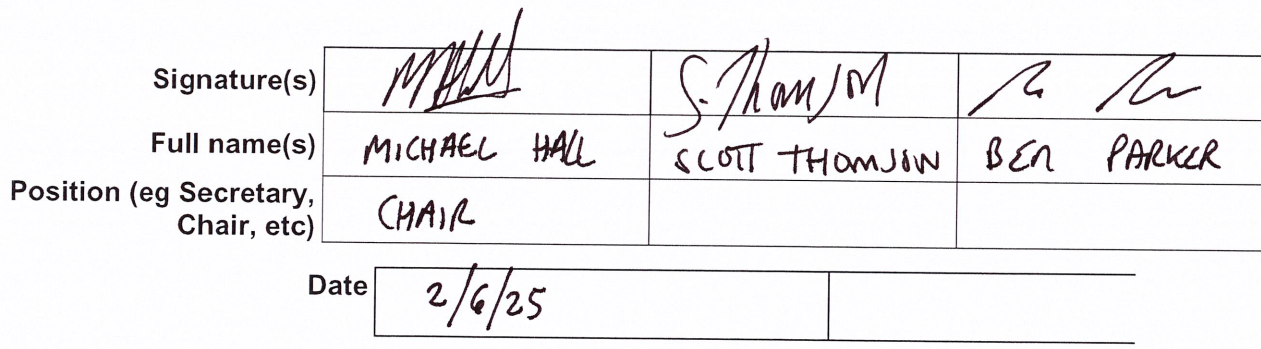 Signature(s) S. Thomson
Full name(s) MICHAEL HALL SCOTT THOMSON BEN PARKER
Position (eg Secretary,
Chair, etc) CHAIR
Date 2/6/25